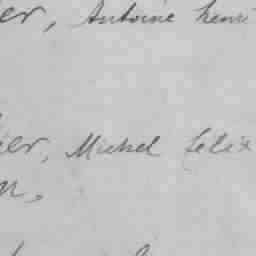 er, Antoine henri
ier, Michel felix
n,